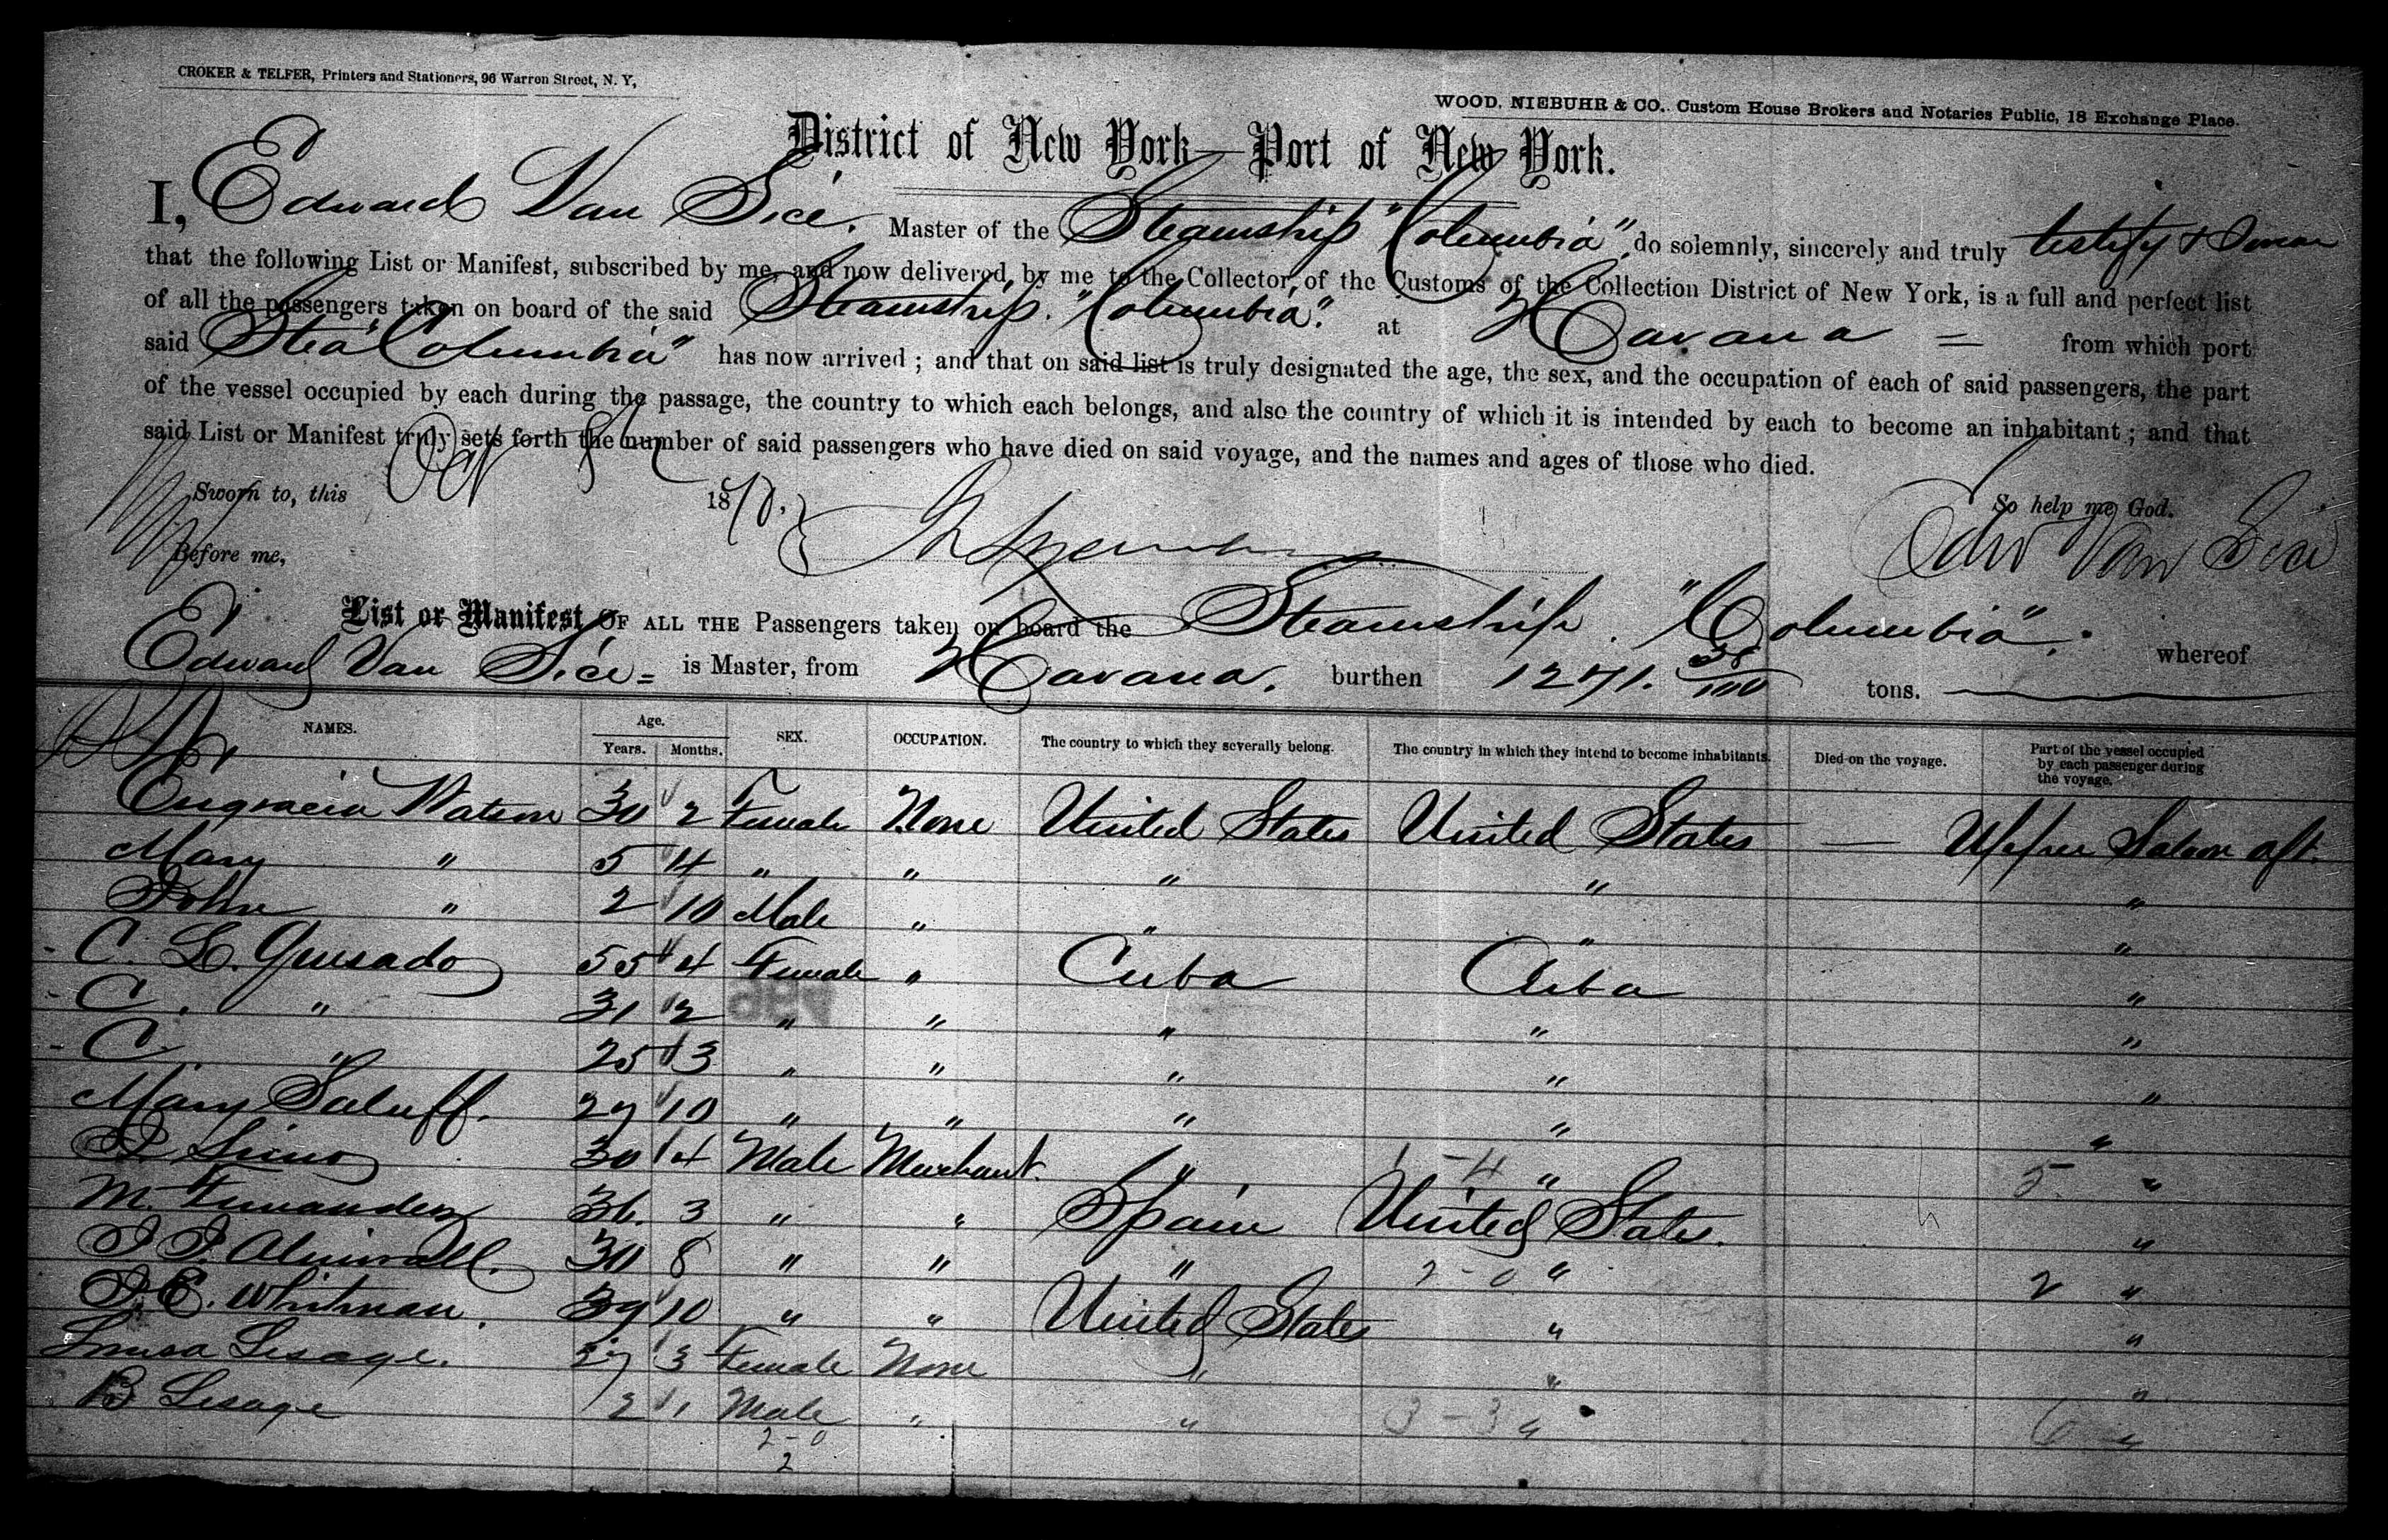 CROKER & TELFER, Printers and Stationers, 96 Warren Street, N. Y,
WOOD, NIEBUHR & CO., Custom House Brokers and Notaries Public, 18 Exchange Place.
District of New York—Port of New York.
I, Edward Van Sice. Master of the Steamship "Columbia", do solemnly, sincerely and truly testify & swear
that the following List or Manifest, subscribed by me, and now delivered by me to the Collector of the Customs of the Collection District of New York, is a full and perfect list
of all the passengers taken on board of the said Steamship. "Columbia". at Havana — from which port
said Stea "Columbia" has now arrived ; and that on said list is truly designated the age, the sex, and the occupation of each of said passengers, the part
of the vessel occupied by each during the passage, the country to which each belongs, and also the country of which it is intended by each to become an inhabitant ; and that
said List or Manifest truly sets forth the number of said passengers who have died on said voyage, and the names and ages of those who died.
Sworn to, this Oct 1870. So help me God.
Before me, Edw Van Sice
List or Manifest OF ALL THE Passengers taken on board the Steamship. "Columbia". whereof
Edward Van Sice = is Master, from Havana. burthen 1271. tons.
NAMES. Age. Years. Months. SEX. OCCUPATION. The country to which they severally belong. The country in which they intend to become inhabitants. Died on the voyage. Part of the vessel occupied by each passenger during the voyage.
Engracia Watson 30 2 Female None United States United States — Upper Saloon aft.
Mary " 5 4 " " " " "
John " 2 10 Male " " " "
C. L. Quesado 55 4 Female " Cuba Cuba "
C. " 31 2 " " " " "
C. " 25 3 " " " " "
Mary Saluff. 27 10 " " " " "
30 4 Male Merchant. " 1-4 " 5 "
M. Fernandez 36. 3 " " Spain United States. "
J J. Almirall. 30 8 " " " 2-0 " 2 "
J E. Whitman. 39 10 " " United States " "
Louisa Lesage. 27 3 Female None " " "
B Lesage 2 1 Male " " 3-3 " 6 "
2-0
2